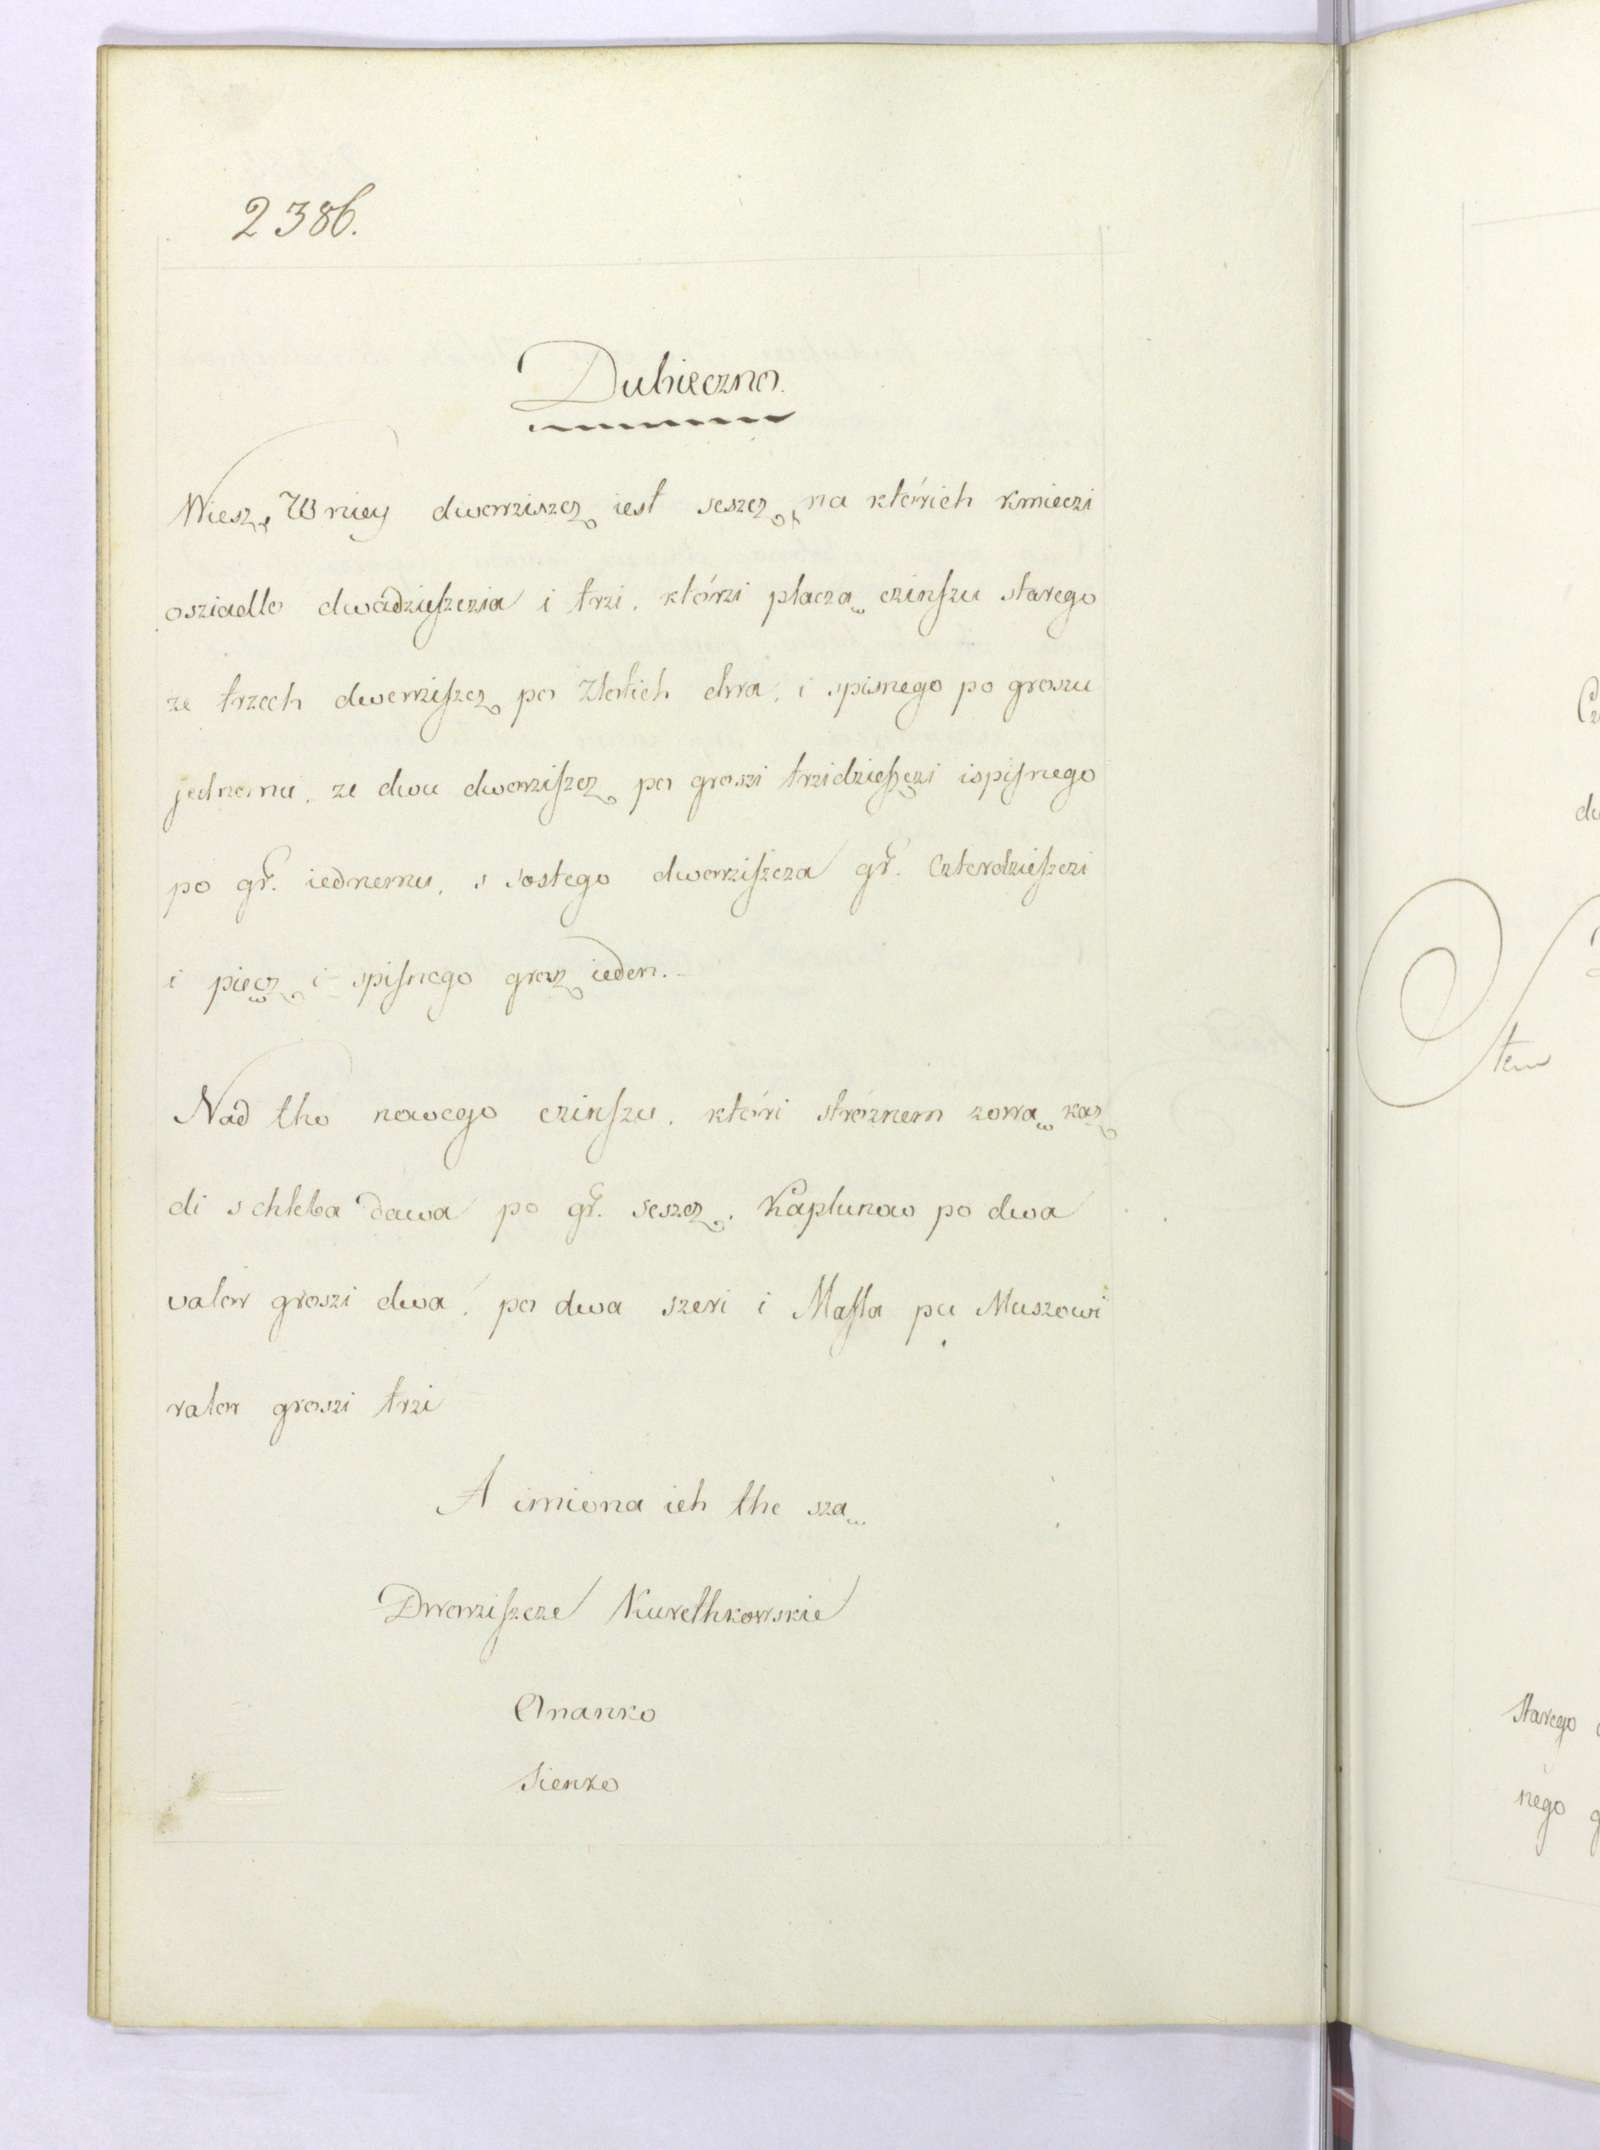 2386.
Dubieczno.
Wiesz, W niey dworziszcz iest seszcz, na którich kmieczi
osziadło dwadzieſzczia i trzi, którzi płacza czinſzu starego
ze trzech dworziſzcz po Złotich dwa, i spisnego po groszu
jednomu, ze dwu dworziſzcz po groszi trzidzieſzczi i spiſnego
po gr. iednemu, s sostego dworziſzcza gr. Czterdzieſzczi
i piecz i spiſnego grosz ieden.
Nad tho nowego czinſzu, któri stróznem zowa kaz
di s chleba dawa po gr. seszcz, Kapłunow po dwa
valor groszi dwa, po dwa szeri i Maſla pu Muszowi
valor groszi trzi
A imiona ich the sza
Dworziſzcze Kurethkowskie
Ananko
Sienko
Cz
du
Item
starego
nego g